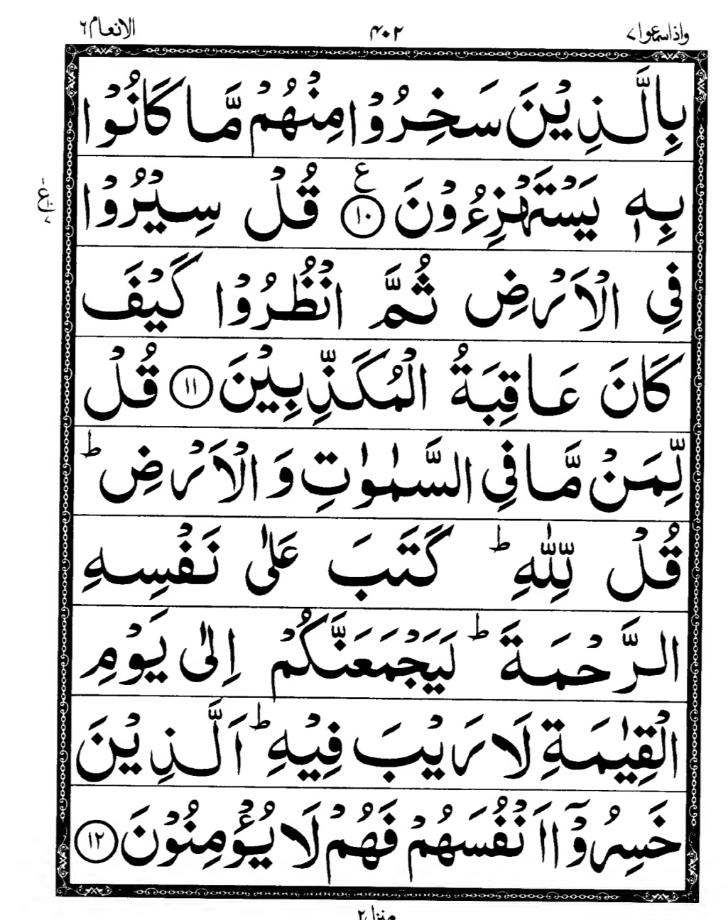 واذاسمعوا٧ ٤٠٢ الانعام٦
بِالَّذِيْنَ سَخِرُوْا مِنْهُمْ مَّا كَانُوْا
بِهٖ يَسْتَهْزِءُوْنَ ۧ‏ ﴿۱۰﴾ قُلْ سِيْرُوْا
فِي الْاَرْضِ ثُمَّ انْظُرُوْا كَيْفَ
كَانَ عَاقِبَةُ الْمُكَذِّبِيْنَ ﴿۱۱﴾ قُلْ
لِّمَنْ مَّا فِي السَّمٰوٰتِ وَالْاَرْضِ ؕ
قُلْ لِّلّٰهِ ؕ كَتَبَ عَلٰى نَفْسِهِ
الرَّحْمَةَ ؕ لَيَجْمَعَنَّكُمْ اِلٰى يَوْمِ
الْقِيٰمَةِ لَا رَيْبَ فِيْهِ ؕ اَلَّذِيْنَ
خَسِرُوْۤا اَنْفُسَهُمْ فَهُمْ لَا يُؤْمِنُوْنَ ﴿۱۲﴾
منزل٢